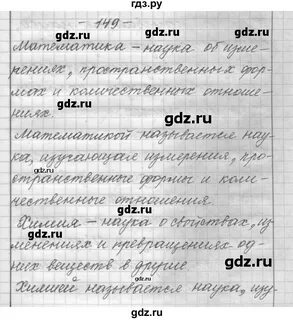 gdz.ru
- 149 -
Математика – наука об изме-
рениях, пространственных фор-
мах и количественных отноше-
ниях.
Математикой называется нау-
ка, изучающая измерения, про-
странственные формы и коли-
чественные отношения.
Химия – наука о свойствах, из
менениях и превращениях од-
них веществ в другие
Химией называется наука, изу-